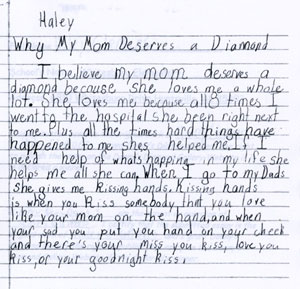 Haley
Why My Mom Deserves a Diamond
I believe my mom deserves a
diamond because she loves me a whole
lot. She loves me because all 8 times I
went to the hospital she been right next
to me. Plus all the times hard things have
happened to me shes helped me. If I
need help of whats happing in my life she
helps me all she can. When I go to my Dads
she gives me kissing hands. Kissing hands
is when you kiss somebody that you love
like your mom on the hand, and when
your sad you put you hand on your cheek
and there's your miss you kiss, love you
kiss, or your goodnight kiss.